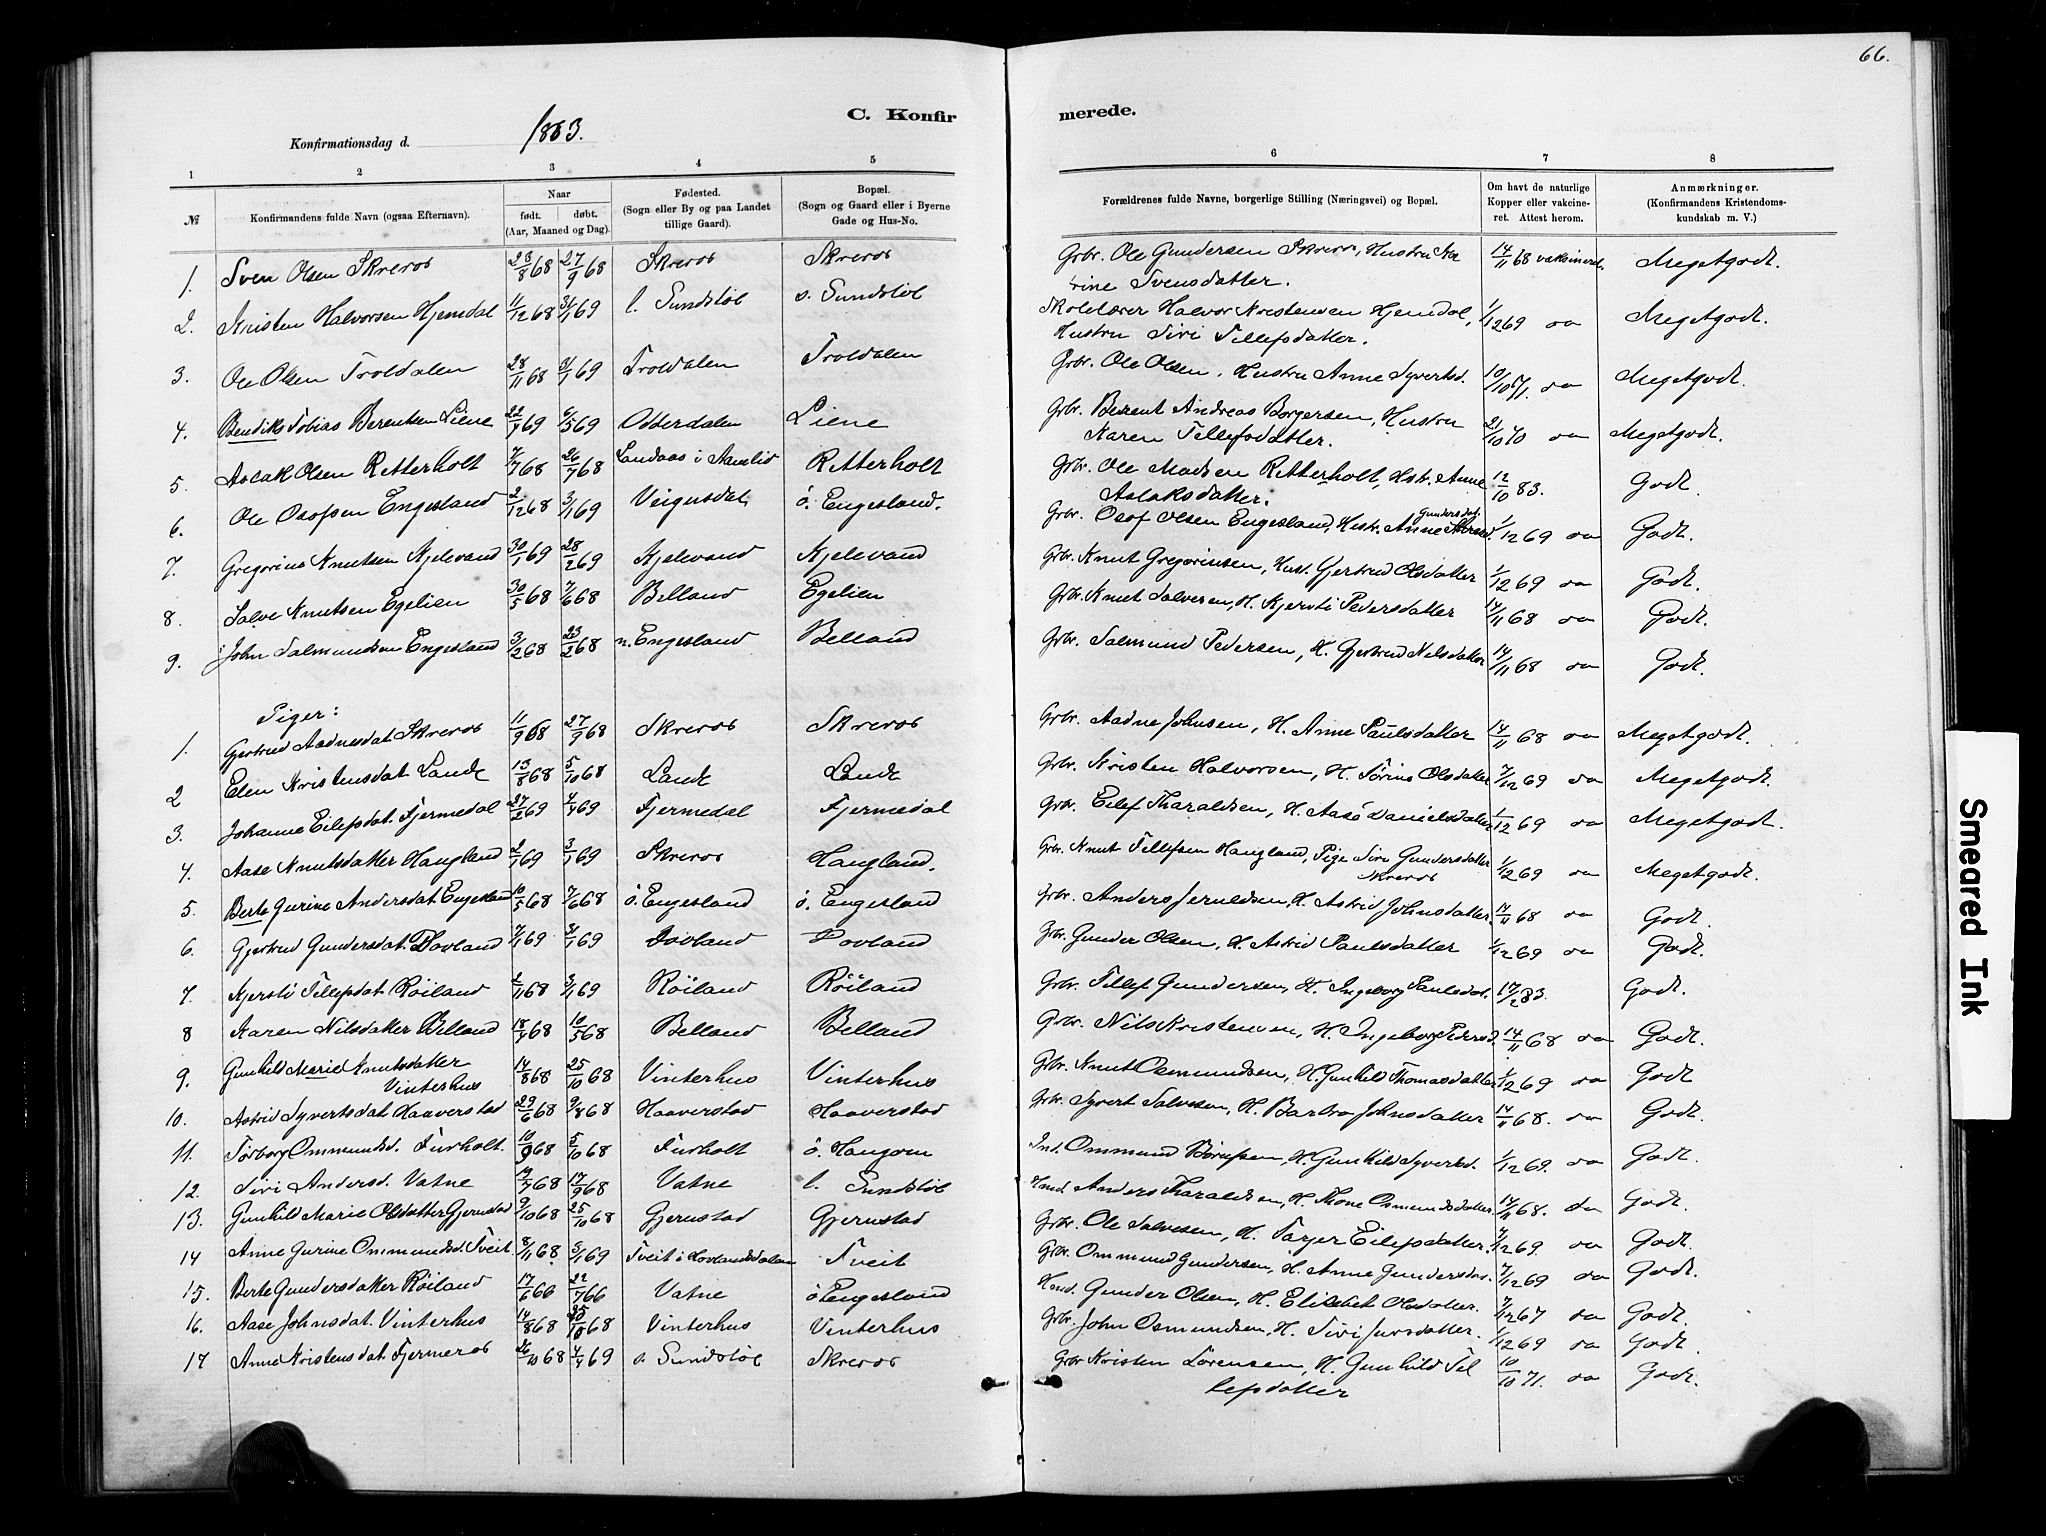 66.
C. Konfir merede.
Konfirmationsdag d. 1883.
1 2 3 4 5 6 7 8
№ Konfirmandens fulde Navn (ogsaa Efternavn). Naar født. døbt. (Aar, Maaned og Dag). Fødested. (Sogn eller By og paa Landet tillige Gaard). Bopæl. (Sogn og Gaard eller i Byerne Gade og Hus-No. Forældrenes fulde Navne, borgerlige Stilling (Næringsvei) og Bopæl. Om havt de naturlige Kopper eller vakcineret. Attest herom. Anmærkninger. (Konfirmandens Kristendomskundskab m. V.)
1. Sven Olsen Skreros 23/8 68 27/9 68 Skreros Skreros Grbr. Ole Gundersen Skreros, Hustru Ka
rine Svensdatter. 14/11 68 vaksineret. Megetgodt.
2. Kristen Halvorsen Hjemdal 11/12 68 31/1 69 l. Sundsløl s. Sundsløl Skolelærer Halvor Kristensen Hjemdal,
Hustru Siri Tellefsdatter. 1/12 69 aa Megetgodt.
3. Ole Olsen Troldalen 28/11 68 3/1 69 Troldalen Troldalen Grbr. Ole Olsen, Hustru Anne Syvertsd. 10/10 71. aa Megetgodt.
4. Bendik Tobias Berentsen Liene 22/4 69 6/5 69 Odderdalen Liene Grbr. Berent Andreas Borgersen, Hustru
Karen Tellefsdatter. 21/10 70 aa Megetgodt.
5. Aslak Olsen Retterholt 7/7 68 26/7 68 Landaas i Aamlid Retterholt Grbr. Ole Madsen Retterholt, Hstr. Anne
Aslaksdatter. 12/10 83. Godt.
6. Ole Osofsen Engesland 2/12 68 3/1 69 Veigusdal ö. Engesland. Grbr. Osof Olsen Engesland, Hustr. Anne Gundersdat. 1/12 69 aa Godt.
7. Gregorius Knutsen Kjelevand 30/1 69 28/2 69 Kjelevand Kjelevand Grbr. Knut Gregoriusen, Hus. Gjertrud Olsdatter 1/12 69 aa Godt.
8. Salve Knutsen Egelien 30/5 68 7/6 68 Belland Egelien Grbr. Knut Salvesen, H. Kjersti Pedersdatter 14/11 68 aa Godt.
9. John Salmundsen Engesland 3/2 68 23/2 68 n. Engesland Belland Grbr. Salmund Pedersen, H. Gjertrud Nilsdatter 14/11 68 aa Godt.
Piger:
1. Gjertrud Aadnesdat. Skreros 11/9 68 27/9 68 Skreros Skreros Grbr. Aadne Johnsen, H. Anne Paulsdatter 14/11 68 aa Megetgodt.
2 Elen Kristensdat. Lande 13/8 68 5/10 68 Lande Lande Grbr. Kristen Halvorsen, H. Torine Olsdatter 7/12 69 aa Megetgodt.
3. Johanne Eilefsdat. Fjermedal 27/2 69 4/4 69 Fjermedal Fjermedal Grbr. Eilef Tharaldsen, H. Aase Danielsdatter 1/12 69 aa Megetgodt.
4. Aase Knutsdatter Haugland 2/1 69 3/1 69 Skreros Haugland. Grbr. Knut Tellefsen Haugland, Pige Siri Gundersdatter
Skreros 1/12 69 aa Megetgodt.
5. Berte Gurine Andersdat. Engesland 10/5 68 7/6 68 ö. Engesland ö. Engesland Grbr. Anders Jeruldsen, H. Astrid Johnsdatter 14/11 68 aa Godt.
6 Gjertrud Gundersdat. Dovland 7/1 69 31/1 69 Dovland Dovland Grbr. Gunder Olsen, H. Astrid Paulsdatter 1/12 69 aa Godt.
7. Kjersti Tellefsdat. Röiland 2/11 68 3/1 69 Röiland Röiland Grbr. Tellef Gundersen, H. Ingeborg Paulsdat. 17/2 83. Godt.
8 Karen Nilsdatter Belland 18/4 68 10/5 68 Belland Belland Grbr. Nils Kristensen, H. Ingeborg Pedersd. 14/11 68 aa Godt.
9. Gunhild Marie Knutsdatter
Vinterhus 14/8 68 25/10 68 Vinterhus Vinterhus Grbr. Knut Osmundsen, H. Gunhild Thomasdatter 1/12 69 aa Godt
10. Astrid Syvertsdat. Haaverstad 29/6 68 9/8 68 Haaverstad Haaverstad Grbr. Syvert Salvesen, H. Barbro Johnsdatter 14/11 68. aa Godt.
11. Torborg Ommundsd. Furholt. 10/9 68 5/10 68 Furholt ö. Haugom Ind. Ommund Börufsen, H. Gunhild Syvertsd. 1/12 69. aa Godt.
12. Siri Andersd. Vatne 17/7 68 17/9 68 Vatne l. Sundsløl Hmd. Anders Tharaldsen, H. Thone Osmundsdatter. 14/11 68. aa Godt.
13. Gunhild Marie Olsdatter Gjerustad 9/10 68 25/10 68 Gjerustad Gjerustad Grbr. Ole Salvesen, H. Tarjer Eilefsdatter. 7/12 69. aa Godt.
14 Anne Gurine Ommundsd. Tveit 8/11 68. 3/1 69 Tveit i Hovlandsdalen Tveit Grbr. Ommund Gundersen, H. Anne Gundersdat. 7/12 69 aa Godt.
15. Berte Gundersdatter Röiland 17/6 66 22/7 66 Vatne ö Engesland Hmd. Gunder Olsen, H. Elisabet Olsdatter. 7/12 67 aa Godt.
16. Aase Johnsdat. Vinterhus 14/8 68 25/10 68 Vinterhus Vinterhus Grbr. John Osmundsen, H. Siri Jursdatter. 1/12 69 aa Godt.
17 Anne Kristensdat. Fjermeros 26/10 68 4/4 69 s. Sundsløl Skreros Grbr Kristen Lorensen, H. Gunhild Tel
lefsdatter 10/10 71. aa Godt.
Smeared Ink